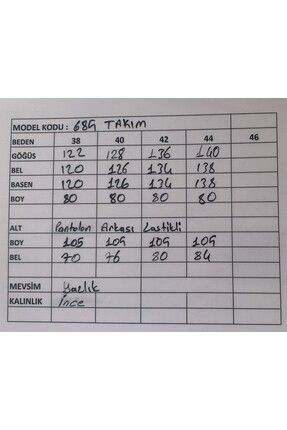 MODEL KODU : 689 TAKIM
BEDEN 38 40 42 44 46
GÖĞÜS 122 128 136 140
BEL 120 126 134 138
BASEN 120 126 134 138
BOY 80 80 80 80
ALT Pantolon Arkası Lastikli
BOY 105 105 105 105
BEL 70 76 80 84
MEVSİM Yazlık
KALINLIK İnce